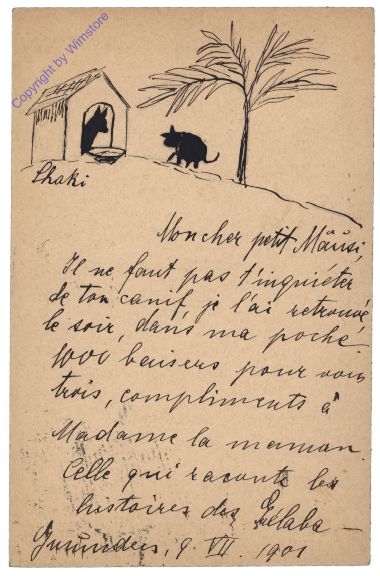 Copyright by Wimstore
Chaki
Mon cher petit Mäusi,
Il ne faut pas t'inquiéter
de ton canif, je l'ai retrouvé
le soir, dans ma poche
1000 baisers pour vous
trois, compliments à
Madame la maman.
Celle qui raconte les
histoires des
Gmunden, 9. VII. 1901